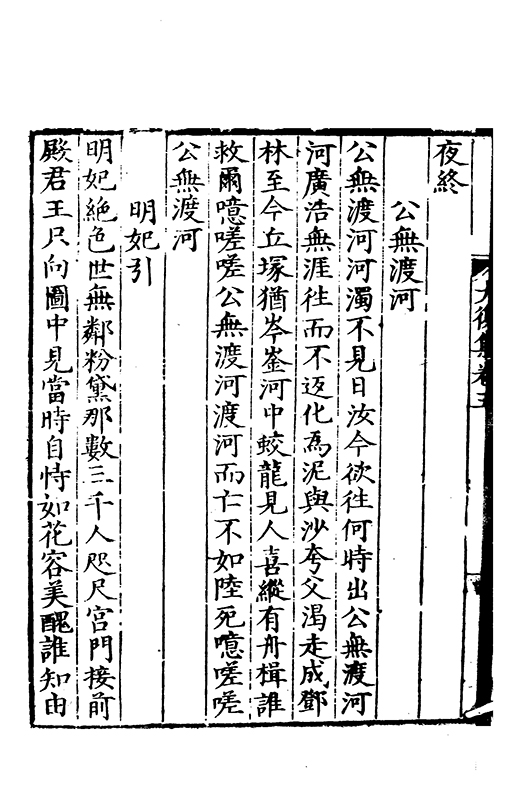 夜終
公無渡河
公無渡河河濁不見日汝今欲往何時出公無渡河
河廣浩無涯往而不返化為泥與沙夸父渴走成鄧
林至今丘塚猶岑崟河中蛟龍見人喜縱有舟楫誰
救爾噫嗟嗟公無渡河渡河而亡不如陸死噫嗟嗟
公無渡河
明妃引
明妃絕色世無鄰粉黛那數三千人咫尺宮門接前
殿君王只向圖中見當時自恃如花容美醜誰知由